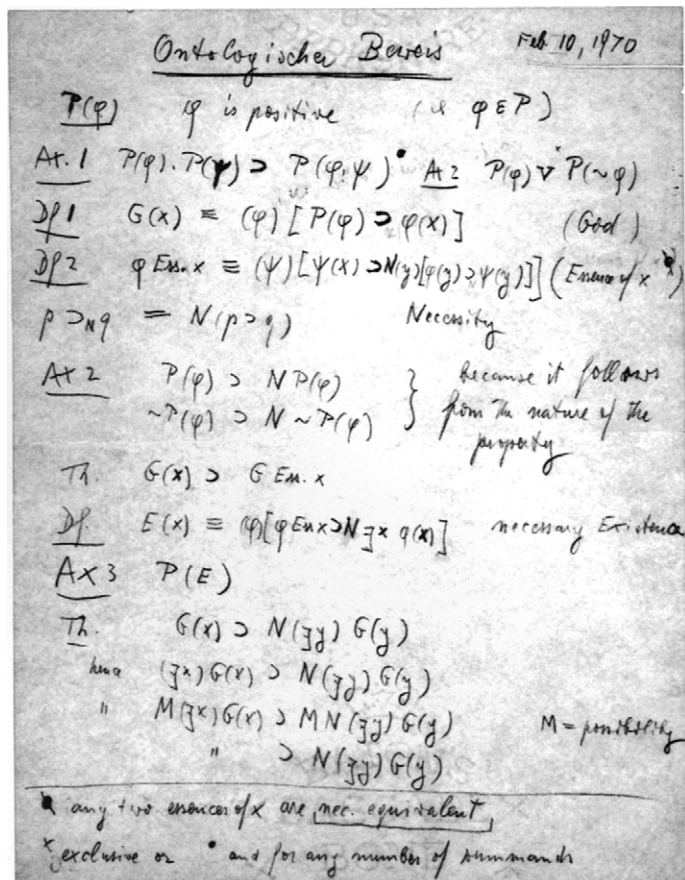 Ontologischer Beweis Feb 10, 1970
P(φ) φ is positive (i.e. φ ε P)
Ax. 1 P(φ).P(ψ) ⊃ P(φ.ψ)• Ax 2 P(φ) ∨ˣ P(~φ)
Df 1 G(x) ≡ (φ)[P(φ) ⊃ φ(x)] (God)
Df 2 φ Ess. x ≡ (ψ)[ψ(x) ⊃ N(y)[φ(y) ⊃ ψ(y)]] (Essence of x)
p ⊃ₙ q = N(p ⊃ q) Necessity
Ax 2 P(φ) ⊃ N P(φ) } because it follows
~P(φ) ⊃ N ~P(φ) } from the nature of the
property
Th. G(x) ⊃ G Ess. x
Df. E(x) ≡ (φ)[φ Ess x ⊃ N ∃x φ(x)] necessary Existence
Ax 3 P(E)
Th. G(x) ⊃ N(∃y) G(y)
hence (∃x) G(x) ⊃ N(∃y) G(y)
" M(∃x) G(x) ⊃ M N(∃y) G(y) M = possibility
" ⊃ N(∃y) G(y)
any two essences of x are nec. equivalent
ˣ exclusive or • and for any number of summands